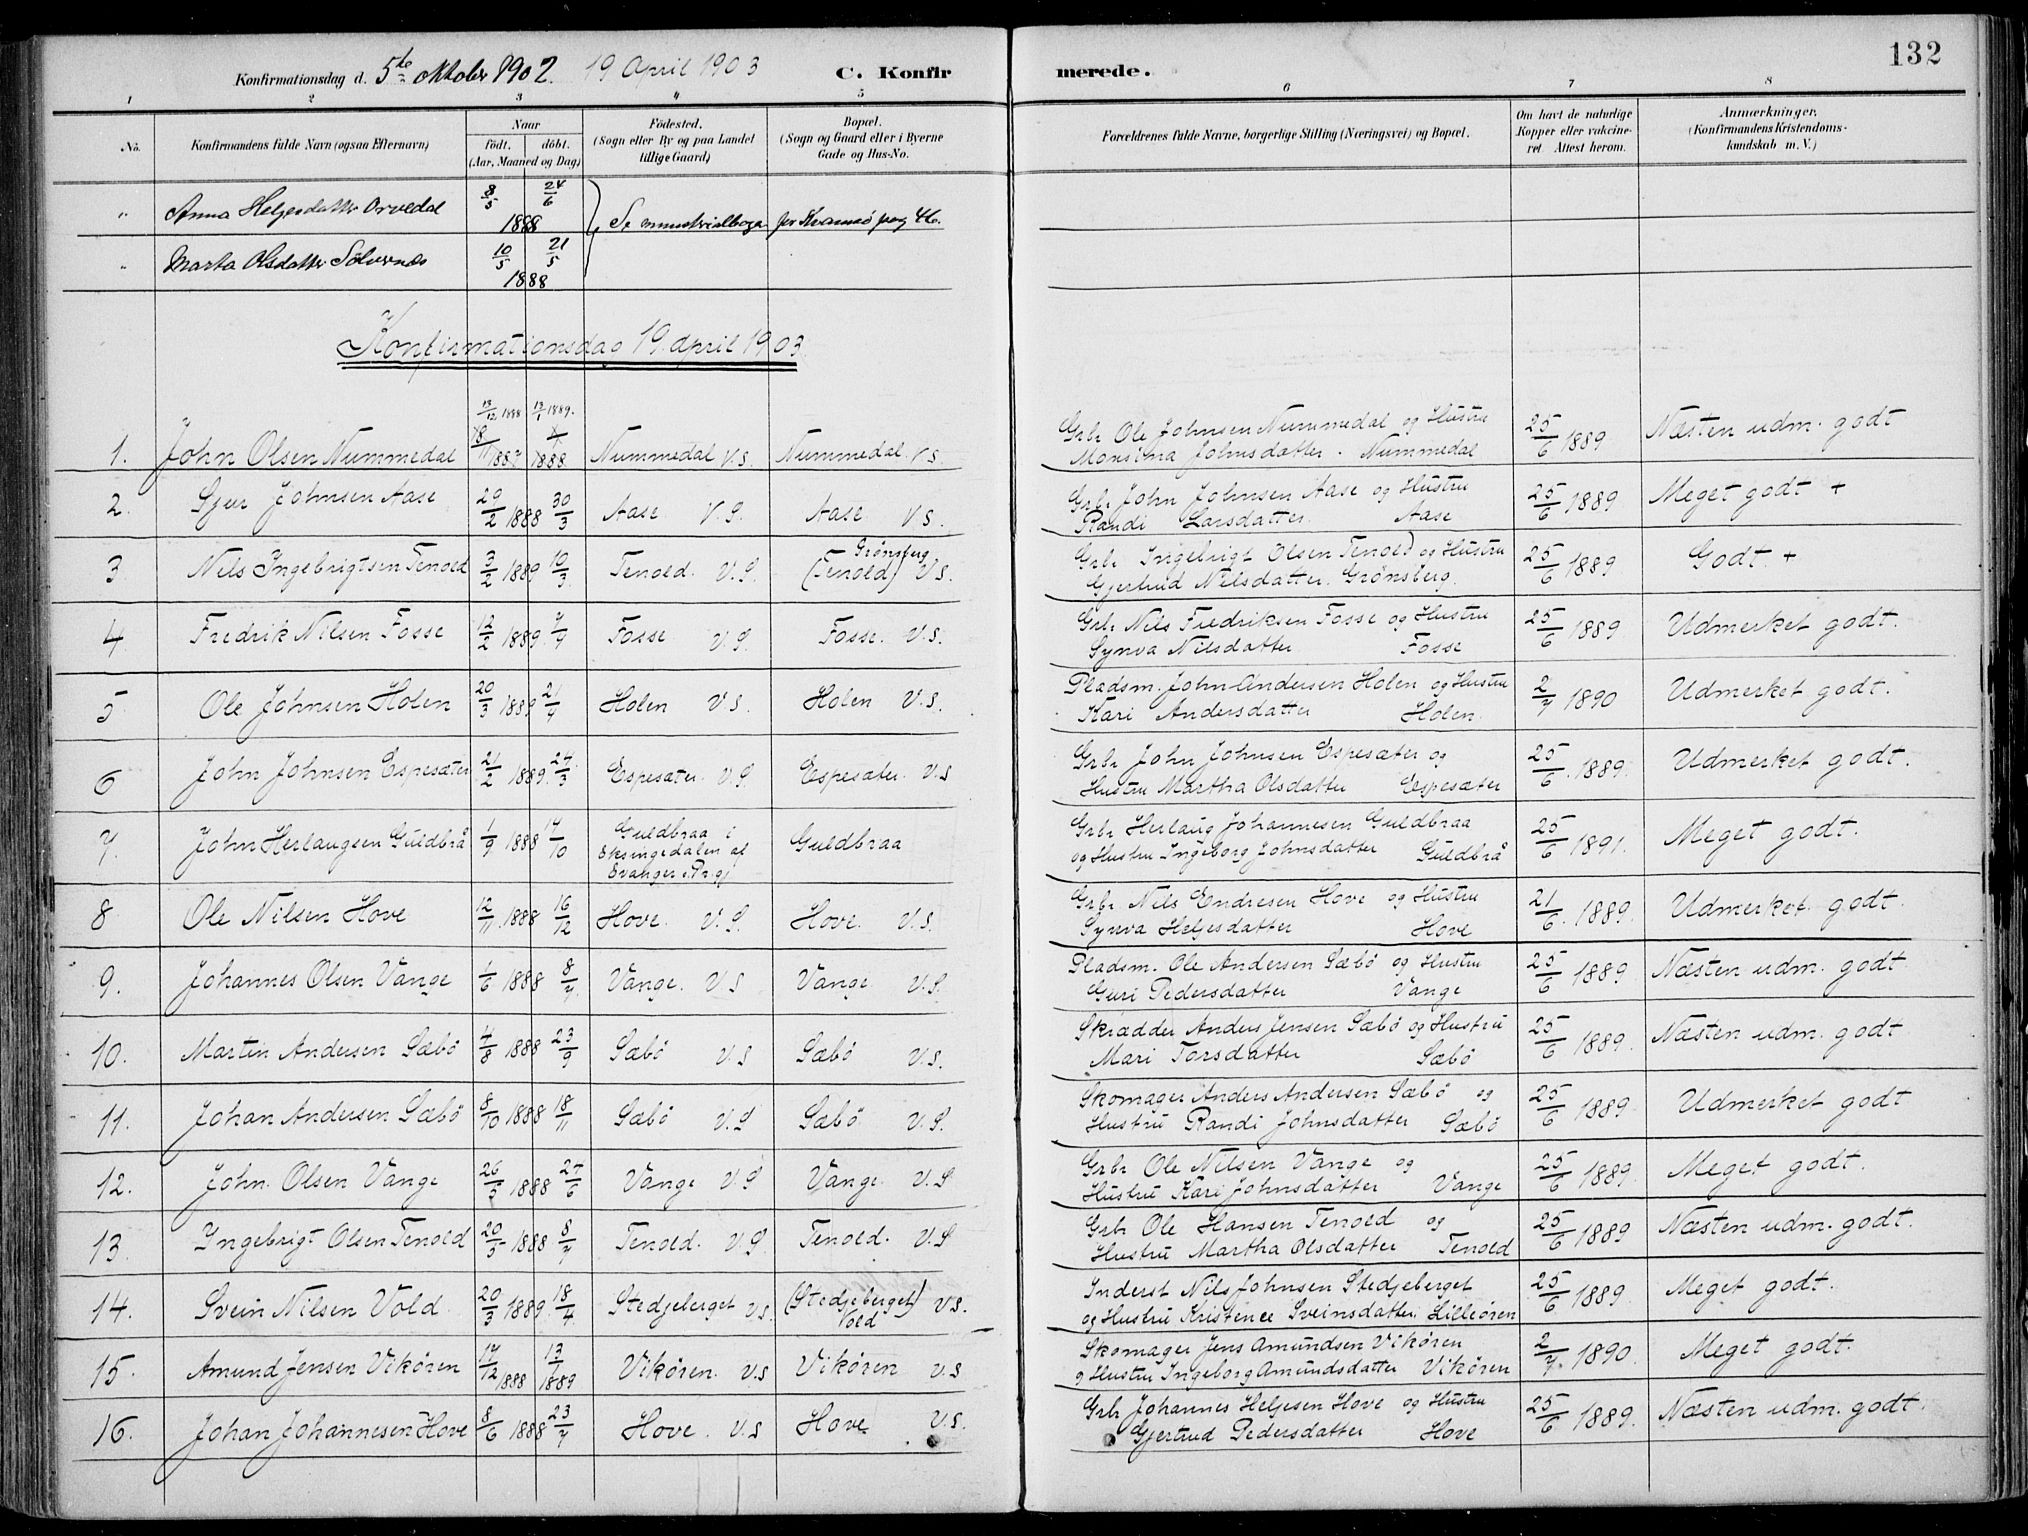 132
Konfirmationsdag d. 5te oktober 1902. 19 April 1903 C. Konfirmerede.
1 2 3 4 5 6 7 8
No. Konfirmandens fulde Navn (ogsaa Efternavn) Naar födt. döbt. (Aar, Maaned og Dag) Födested. (Sogn eller By og paa Landet tillige Gaard) Bopæl. (Sogn og Gaard eller i Byerne Gade og Hus-No. Forældrenes fulde Navne, borgerlige Stilling (Næringsvei) og Bopæl. Om havt de naturlige Kopper eller vakcineret Attest herom. Anmærkninger. (Konfirmandens Kristendomskundskab m. V.)
" Anna Helgesdatter Orvedal 8/5 24/6 1888
Se ministerialboga for Kvamsö pag 46.
" Marta Olsdatter Sølvernæs 10/5 21/5 1888
Konfirmationsdag 19. april 1903
13/12 1888 13/1 1889.
1. John Olsen Nummedal 18/11 1887 1/1 1888. Nummedal V.S. Nummedal. V.S. Grbr Ole Johnsen Nummedal og Hustru Monsina Johnsdatter. Nummedal 25/6 1889 Næsten udm. godt
2. Sjur Johnsen Aase 29/2 1888 30/3 Aase V.S. Aase V.S. Grbr John Johnsen Aase og Hustru Randi Larsdatter. Aase 25/6 1889 Meget godt +
3 Nils Ingebrigtsen Tenold 3/2 1889 10/3. Tenold. V.S. Grønsberg (Tenold) V.S. Grbr Ingebrigt Olsen Tenold og Hustru Gjertrud Nilsdatter. Grønsberg. 25/6 1889 Godt. +
4 Fredrik Nilsen Fosse 12/2 1889. 7/4 Fosse V.S. Fosse. V.S. Grbr Nils Fredriksen Fosse og Hustru Synva Nilsdatter Fosse 25/6 1889 Udmerket godt.
5 Ole Johnsen Holen 20/3 1889 21/4 Holen V.S. Holen V.S. Pladsm. John Andersen Holen og Hustru Kari Andersdatter Holen. 2/7 1890 Udmerket godt.
6 John Johnsen Espesæter 21/2 1889. 24/3 Espesæter. V.S. Espesæter. V.S Grbr John Johnsen Espesæter og Hustru Martha Olsdatter Espesæter 25/6. 1889. Udmerket godt.
7. John Herlaugsen Guldbrå 1/9 1888 14/10 Guldbraa i Ekringedalen af Evanger Pr.gj Guldbraa Grbr Herlaug Johannesen Guldbraa og Hustru Ingeborg Johnsdatter Guldbrå 25/6 1891. Meget godt.
8 Ole Nilsen Hove 12/11. 1888 16/12 Hove. V.S. Hove. V.S. Grbr Nils Endresen Hove og Hustru Synva Helgesdatter Hove 21/6. 1889. Udmerket godt.
9. Johannes Olsen Vange 1/6 1888 8/7. Vange. V.S Vange V.S. Pladsm. Ole Andersen Sæbö og Hustru Guri Pedersdatter Vange 25/6 1889. Næsten udm. godt
10. Marten Andersen Sæbö 4/8 1888 23/9 Sæbö V.S Sæbö V.S. Skrædder Anders Jensen Sæbö og Hustru Mari Torsdatter Sæbö 25/6 1889. Næsten udm. godt
11. Johan Andersen Sæbö 8/10 1888 18/11 Sæbö V.S Sæbö V.S. Skomager Anders Andersen Sæbö og Hustru Randi Johnsdatter Sæbö 25/6 1889. Udmerket godt
12. John Olsen Vange 26/5 1888 24/6 Vange V.S Vange. V.S Grbr Ole Nilsen Vange og Hustru Kari Johnsdatter Vange 25/6 1889. Meget godt.
13. Ingebrigt Olsen Tenold 20/5 1888 8/7 Tenold. V.S Tenold. V.S Grbr Ole Hansen Tenold og Hustru Martha Olsdatter Tenold 25/6 1889 Næsten udm. godt.
14. Svein Nilsen Vold 20/3 1889. 18/4 Stedjeberget V.S (Stedjeberget) Vold V.S. Inderst Nils Johnsen Stedjeberget og Hustru Kristence Sveinsdatter. Lilleören 25/6 1889. Meget godt.
15. Amund Jensen Vikören 17/12 1888 13/1 1889 Vikören. V.S Vikören V.S Skomager Jens Amundsen Vikören og Hustru Ingeborg Amundsdatter Vikören 2/7. 1890. Meget godt.
16. Johan Johannesen Hove 8/6 1888 23/7 Hove. V.S Hove V.S. Grbr Johannes Helgesen Hove og Hustru Gjertrud Pedersdatter Hove 25/6 1889. Næsten udm. godt.